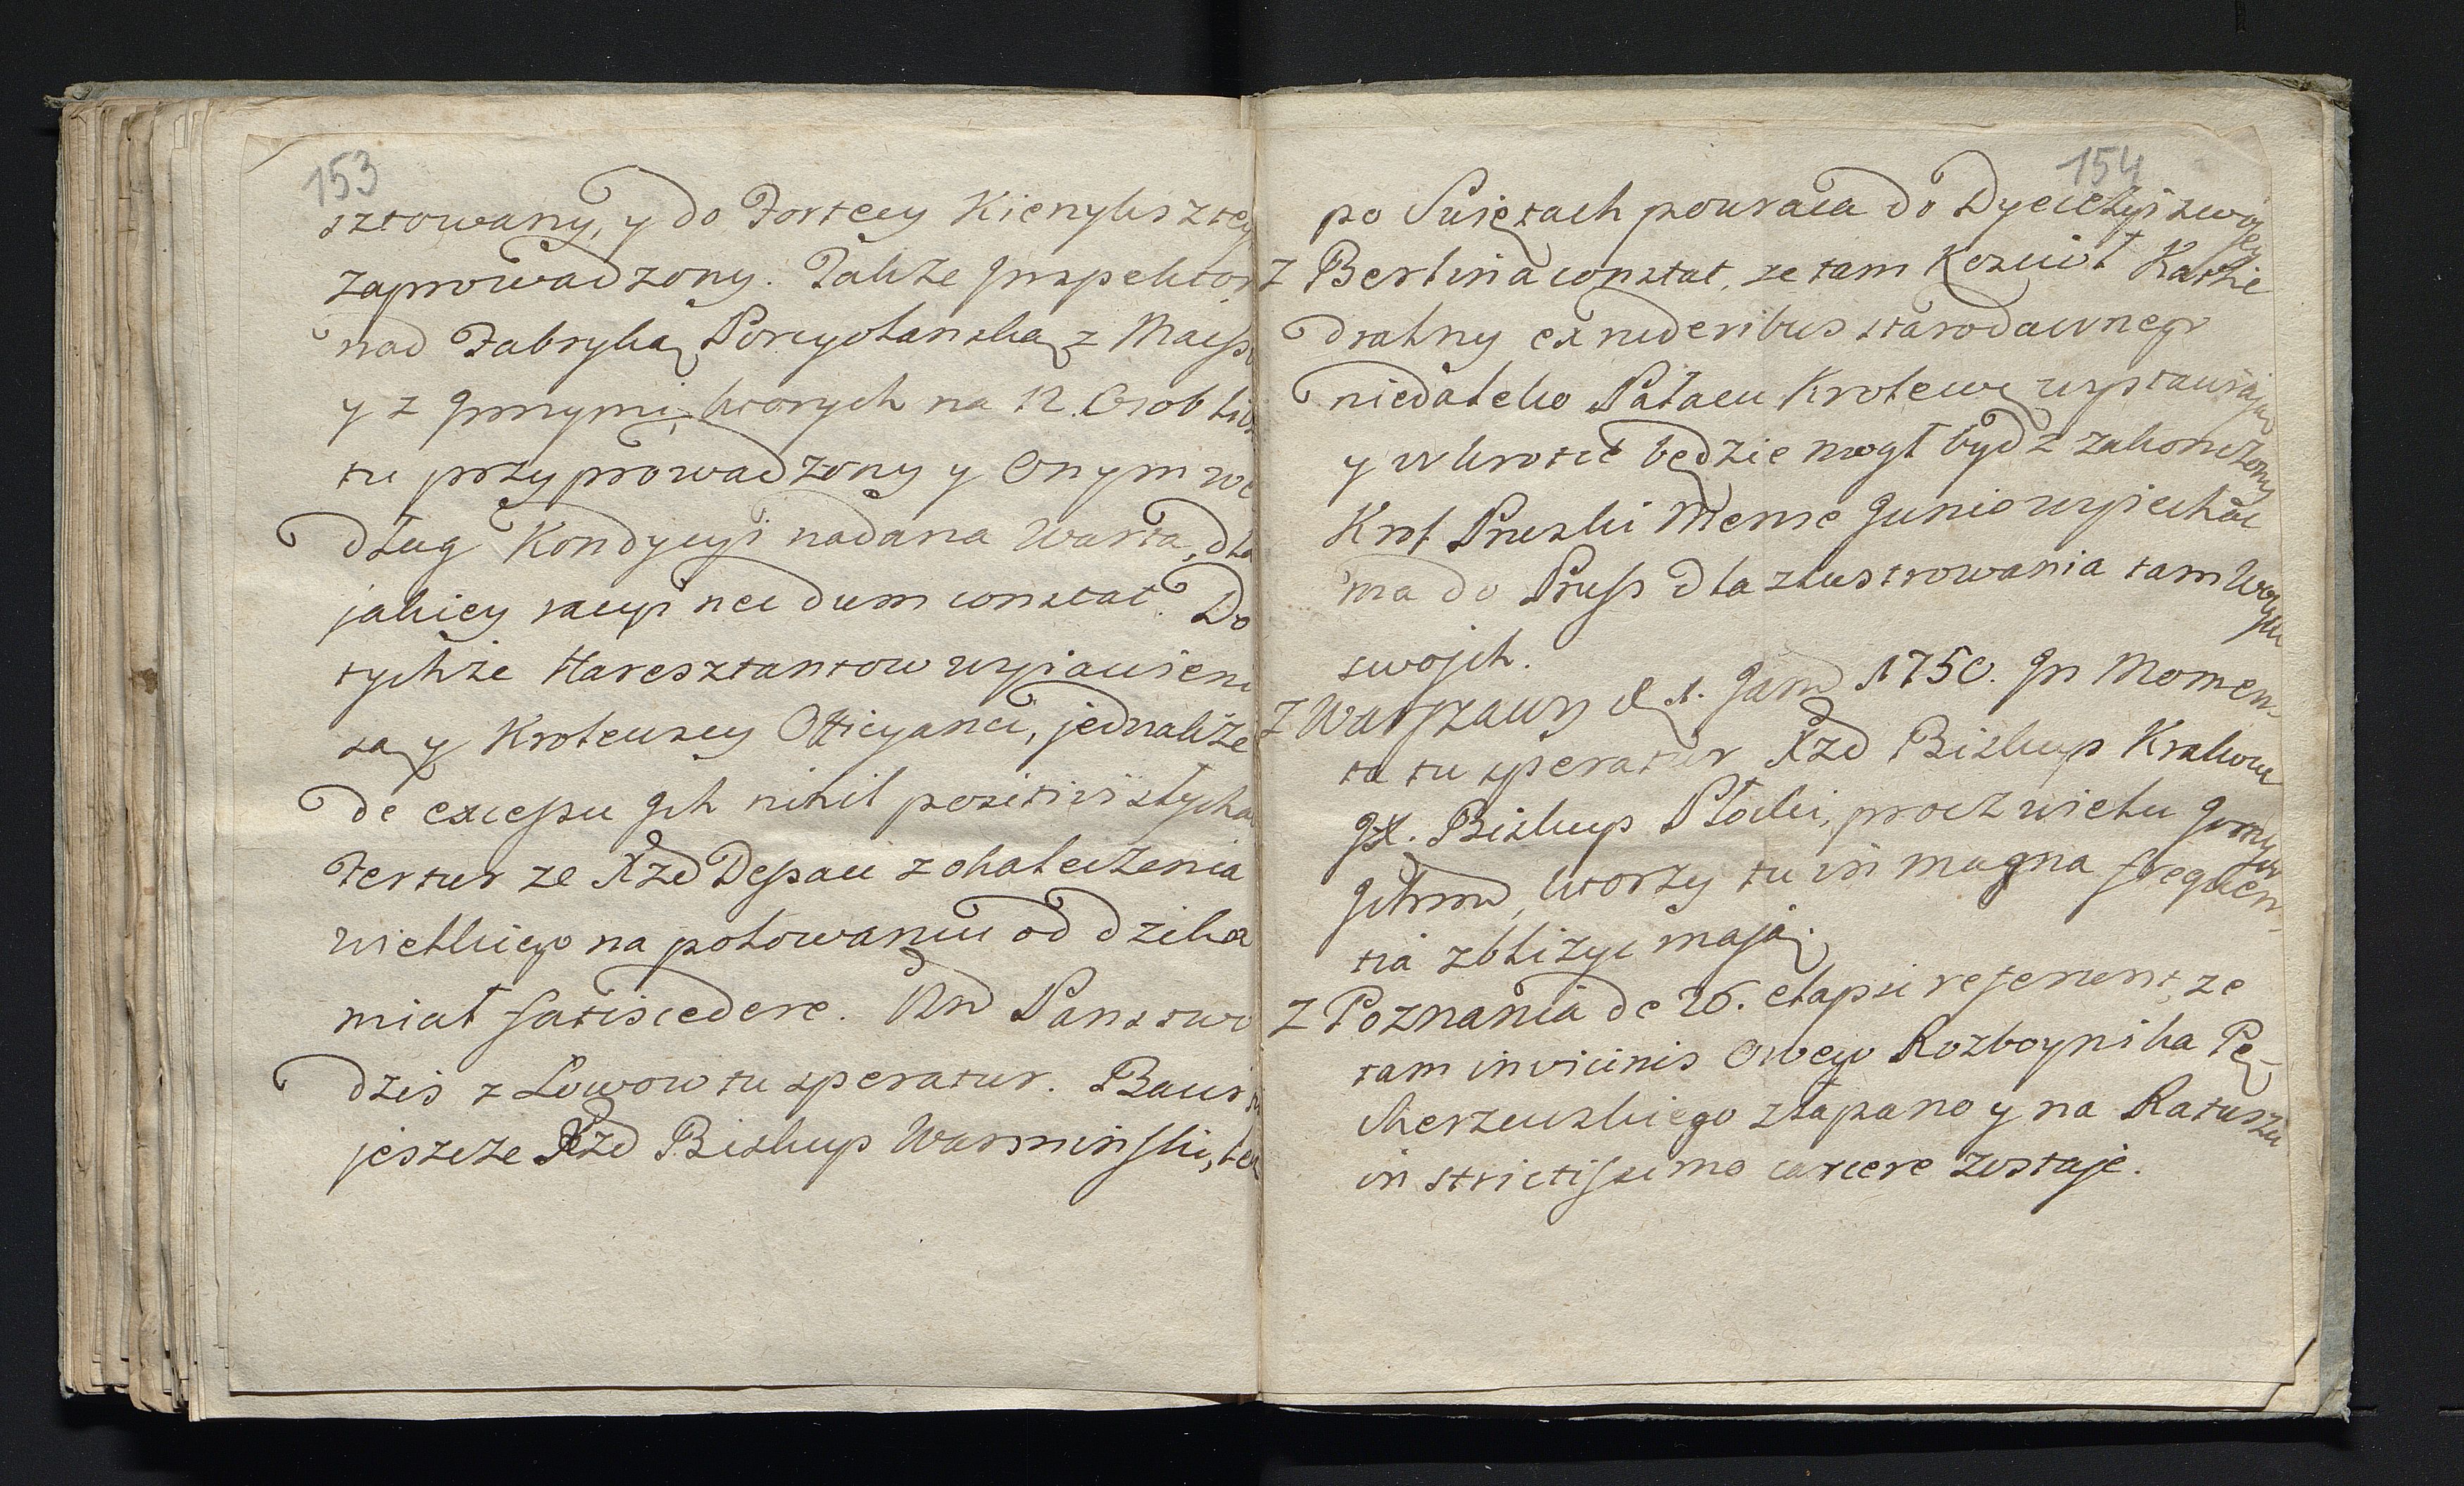 153
sztowany, y do Fortecy Kienyksztey
zaprowadzony. Także Jnspektor
nad Fabryką Porcyolanską z Maiss
y z Jnnymi, ktorych na 12. Osob licz
tu przyprowadzony y Onym we
dług Kondycyi nadana Warta, dla
jakiey racyi nec dum constat. Do
tychże Haresztantow wyiawieni
są y Krolewscy Officyanci, jednakże
de excessu Jch nihil positivi słycha
Fertur ze Xże Dessau z okaleczenia
wielkiego na polowaniu od dzika
miał fatis cedere. Kro Panstwo
dzis z Łowow tu speratur. Bawi
jeszcze Xże Biskup Warminski, lecz
154
po Swiętach powraca do Dyecezyi swojey
z Berlina constat, ze tam Koscioł Kathe
dralny ex ruderibus starodawnego
niedaleko Pałacu Krolewi wystawiają
y wkrotce będzie mogł bydz zakonczony
Krol Pruski Mense Junio wyiechac
ma do Pruss dla zlustrowania tam Woysk
swojch.
z Warszawy d. 1. Jan 1750. Jn Momen-
ta tu speratur Xże Biskup Krakow
JX. Biskup Płocki, procz wielu Jnnych
Jchmw, ktorzy tu in magna frequen-
tia zbliżyc mają.
z Poznania de 26. elapsi referunt, ze
tam in vicinis Owego Rozboynika Pę-
cherzewskiego złapano y na Ratuszu
in strictissimo carcere zostaje.